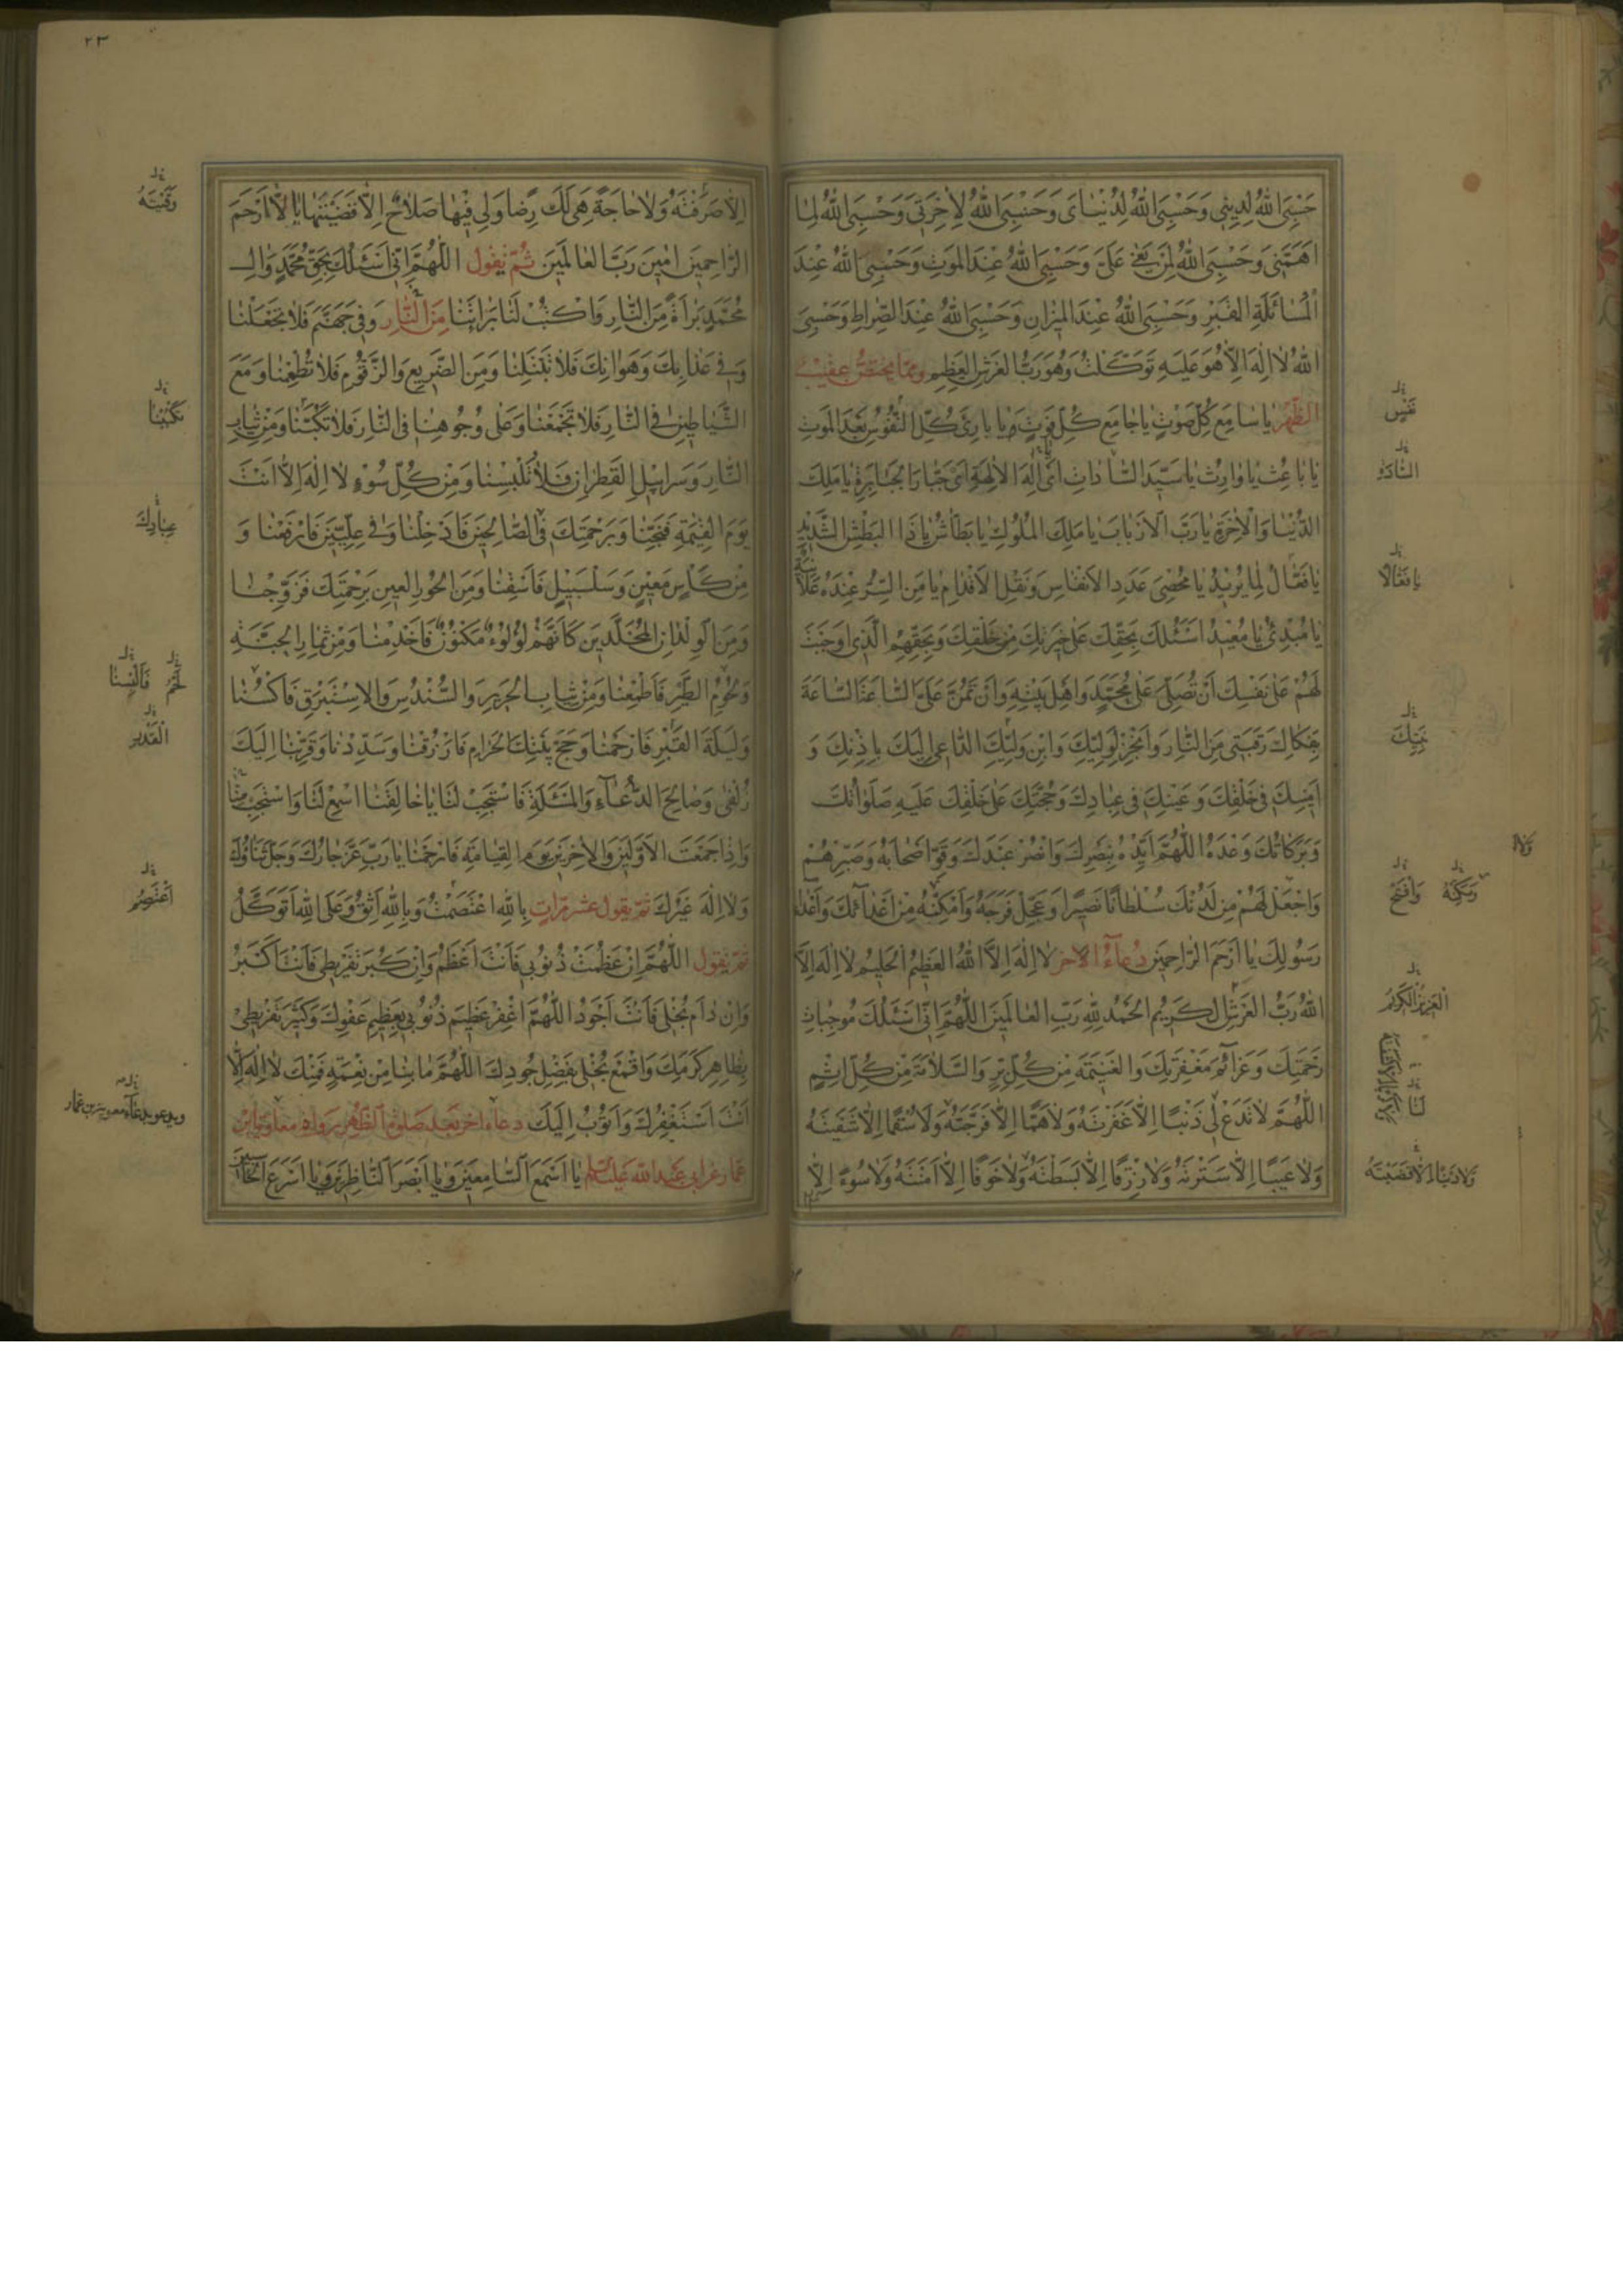 حَسْبِيَ اللهُ لِدِينِي وَحَسْبِيَ اللهُ لِدُنْيَايَ وَحَسْبِيَ اللهُ لِاٰخِرَتِي وَحَسْبِيَ اللهُ لِمَا
اَهَمَّنِي وَحَسْبِيَ اللهُ لِمَنْ بَغٰى عَلَيَّ وَحَسْبِيَ اللهُ عِنْدَ المَوْتِ وَحَسْبِيَ اللهُ عِنْدَ
الْمَسْائَلَةِ القَبْرِ وَحَسْبِيَ اللهُ عِنْدَ المِيزٰانِ وَحَسْبِيَ اللهُ عِنْدَ الصِّرٰاطِ وَحَسْبِيَ
اللهُ لٰا اِلٰهَ اِلّٰا هُوَ عَلَيْهِ تَوَكَّلْتُ وَهُوَ رَبُّ العَرْشِ العَظِيمِ وممّا يختصّ عقيب
الظّهر يٰا سٰامِعَ كُلِّ صَوْتٍ يٰا جٰامِعَ كُلِّ فَوْتٍ يٰا بٰارِئَ كُلِّ النُّفُوسِ بَعْدَ المَوْتِ
يٰا بٰاعِثُ يٰا وٰارِثُ يٰا سَيِّدَ السّٰادٰاتِ اَيْ اِلٰهَ الاٰلِهَةِ اَيْ جَبّٰارَ الجَبٰابِرَةِ يٰا مَلِكَ
الدُّنْيٰا وَالْاٰخِرَةِ يٰا رَبَّ الاَرْبٰابِ يٰا مَلِكَ المُلُوكِ يٰا بَطّٰاشُ يٰا ذَا البَطْشِ الشَّدِيدِ
يٰا فَعّٰالُ لِمٰا يُرِيدُ يٰا مُحْصِيَ عَدَدِ الاَنْفٰاسِ وَنَقْلِ الاَقْدٰامِ يٰا مَنِ السِّرُّ عِنْدَهُ عَلٰانِيَةٌ
يٰا مُبْدِئُ يٰا مُعِيدُ اَسْئَلُكَ بِحَقِّكَ عَلٰى خِيَرَتِكَ مِنْ خَلْقِكَ وَبِحَقِّهِمُ الَّذِي اَوْجَبْتَ
لَهُمْ عَلٰى نَفْسِكَ اَنْ تُصَلِّيَ عَلٰى مُحَمَّدٍ وَاَهْلِ بَيْتِهِ وَاَنْ تَمُنَّ عَلَيَّ السّٰاعَةَ السّٰاعَةَ
بِفَكٰاكِ رَقَبَتِي مِنَ النّٰارِ وَاَنْجِزْ لِوَلِيِّكَ وَابْنِ وَلِيِّكَ الدّٰاعِي اِلَيْكَ بِاِذْنِكَ وَ
اَمِينِكَ فِي خَلْقِكَ وَعَيْنِكَ فِي عِبٰادِكَ وَحُجَّتِكَ عَلٰى خَلْقِكَ عَلَيْهِ صَلَوٰاتُكَ
وَبَرَكٰاتُكَ وَعْدَهُ اللّٰهُمَّ اَيِّدْهُ بِنَصْرِكَ وَانْصُرْ عَبْدَكَ وَقَوِّ اَصْحٰابَهُ وَصَبِّرْهُمْ
وَاجْعَلْ لَهُمْ مِنْ لَدُنْكَ سُلْطٰانًا نَصِيرًا وَعَجِّلْ فَرَجَهُ وَاَمْكِنْهُ مِنْ اَعْدٰائِكَ وَاَعْدٰاءِ
رَسُولِكَ يٰا اَرْحَمَ الرّٰاحِمِينَ دُعٰاءُ الاٰخر لٰا اِلٰهَ اِلَّا اللهُ العَظِيمُ الحَلِيمُ لٰا اِلٰهَ اِلَّا
اللهُ رَبُّ العَرْشِ الكَرِيمِ الحَمْدُ لِلّٰهِ رَبِّ العٰالَمِينَ اللّٰهُمَّ اِنِّي اَسْئَلُكَ مُوجِبٰاتِ
رَحْمَتِكَ وَعَزٰائِمَ مَغْفِرَتِكَ وَالغَنِيمَةَ مِنْ كُلِّ بِرٍّ وَالسَّلٰامَةَ مِنْ كُلِّ اِثْمٍ
اللّٰهُمَّ لٰا تَدَعْ لِي ذَنْبًا اِلّٰا غَفَرْتَهُ وَلٰا هَمًّا اِلّٰا فَرَّجْتَهُ وَلٰا سُقْمًا اِلّٰا شَفَيْتَهُ
وَلٰا عَيْبًا اِلّٰا سَتَرْتَهُ وَلٰا رِزْقًا اِلّٰا بَسَطْتَهُ وَلٰا خَوْفًا اِلّٰا اٰمَنْتَهُ وَلٰا سُوءً اِلّٰا
نَفْسٍ
السّادة
يا فَعّالًا
نبيّك
ومَكِّنْهُ
وافتح
العزيز الكريم
لَنا
ولا دَيْنًا اِلّا قَضَيْتَهُ
٢٣
اِلّٰا صَرَفْتَهُ وَلٰا حٰاجَةً هِيَ لَكَ رِضًا وَلِي فِيهٰا صَلٰاحٌ اِلّٰا قَضَيْتَهٰا يٰا اَرْحَمَ
الرّٰاحِمِينَ اٰمِينَ رَبَّ العٰالَمِينَ ثُمّ يقول اللّٰهُمَّ اِنِّي اَسْئَلُكَ بِحَقِّ مُحَمَّدٍ وَاٰلِ
مُحَمَّدٍ بَرٰاءَةً مِنَ النّٰارِ فَاكْتُبْ لَنٰا بَرٰاءَتَنٰا مِنَ النّٰارِ وَفِي جَهَنَّمَ فَلٰا تَجْعَلْنٰا
وَفِي عَذٰابِكَ وَهَوٰانِكَ فَلٰا تَبْتَلِنٰا وَمِنَ الضَّرِيعِ وَالزَّقُّومِ فَلٰا تُطْعِمْنٰا وَمَعَ
الشَّيٰاطِينِ فِي النّٰارِ فَلٰا تَجْمَعْنٰا وَعَلٰى وُجُوهِنٰا فِي النّٰارِ فَلٰا تَكُبَّنٰا وَمِنْ ثِيٰابِ
النّٰارِ وَسَرٰابِيلِ القَطِرٰانِ فَلٰا تُلْبِسْنٰا وَمِنْ كُلِّ سُوءٍ لٰا اِلٰهَ اِلّٰا اَنْتَ
يَوْمَ القِيٰمَةِ فَنَجِّنٰا وَبِرَحْمَتِكَ فِي الصّٰالِحِينَ فَاَدْخِلْنٰا وَفِي عِلِّيِّينَ فَارْفَعْنٰا وَ
مِنْ كَأْسٍ مَعِينٍ وَسَلْسَبِيلٍ فَاسْقِنٰا وَمِنَ الحُورِ العِينِ بِرَحْمَتِكَ فَزَوِّجْنٰا
وَمِنَ الوِلْدٰانِ المُخَلَّدِينَ كَاَنَّهُمْ لُؤْلُؤٌ مَكْنُونٌ فَاَخْدِمْنٰا وَمِنْ ثِمٰارِ الجَنَّةِ
وَلُحُومِ الطَّيْرِ فَاَطْعِمْنٰا وَمِنْ ثِيٰابِ الحَرِيرِ وَالسُّنْدُسِ وَالاِسْتَبْرَقِ فَاكْسُنٰا
وَلَيْلَةَ القَدْرِ فَارْحَمْنٰا وَحَجَّ بَيْتِكَ الحَرٰامِ فَارْزُقْنٰا وَسَدِّدْنٰا وَقَرِّبْنٰا اِلَيْكَ
زُلْفٰى وَصٰالِحَ الدُّعٰاءِ وَالمَسْئَلَةِ فَاسْتَجِبْ لَنٰا يٰا خٰالِقَنٰا اسْمَعْ لَنٰا وَاسْتَجِبْ مِنّٰا
وَاِذٰا جَمَعْتَ الاَوَّلِينَ وَالاٰخِرِينَ يَوْمَ القِيٰامَةِ فَارْحَمْنٰا يٰا رَبِّ عَزَّ جٰارُكَ وَجَلَّ ثَنٰاؤُكَ
وَلٰا اِلٰهَ غَيْرُكَ ثمّ يقول عشر مرّات بِاللهِ اعْتَصَمْتُ وَبِاللهِ اَثِقُ وَعَلَى اللهِ اَتَوَكَّلُ
ثمّ يقول اللّٰهُمَّ اِنْ عَظُمَتْ ذُنُوبِي فَاَنْتَ اَعْظَمُ وَاِنْ كَبُرَ تَفْرِيطِي فَاَنْتَ اَكْبَرُ
وَاِنْ دٰامَ بُخْلِي فَاَنْتَ اَجْوَدُ اللّٰهُمَّ اغْفِرْ عَظِيمَ ذُنُوبِي بِعَظِيمِ عَفْوِكَ وَكَثِيرَ تَفْرِيطِي
بِظٰاهِرِ كَرَمِكَ وَاقْمَعْ بُخْلِي بِفَضْلِ جُودِكَ اللّٰهُمَّ مٰا بِنٰا مِنْ نِعْمَةٍ فَمِنْكَ لٰا اِلٰهَ اِلّٰا
اَنْتَ اَسْتَغْفِرُكَ وَاَتُوبُ اِلَيْكَ دعاء اخر بعد صلوة الظّهر رواه معاوية بن
عمّار عن ابي عبد الله عليه السلم يٰا اَسْمَعَ السّٰامِعِينَ وَيٰا اَبْصَرَ النّٰاظِرِينَ وَيٰا اَسْرَعَ الحٰاسِبِينَ
وَقَيْتَهُ
تَكْبُبْنا
عِبادِكَ
لَحْمِ
فَاَلْبِسْنا
القَدْر
اَعْتَصِمُ